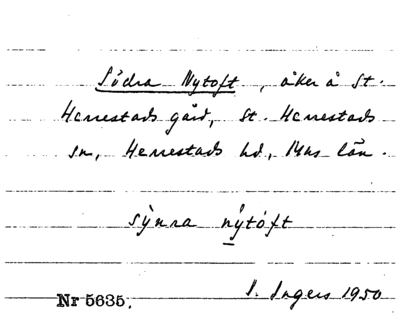 Södra Nytoft, åker å St.
Herrestads gård, St. Herrestads
sn, Herrestads hd, Mhs län.
sỳnra nỳtóft
Nr 5635. I. Ingers 1950